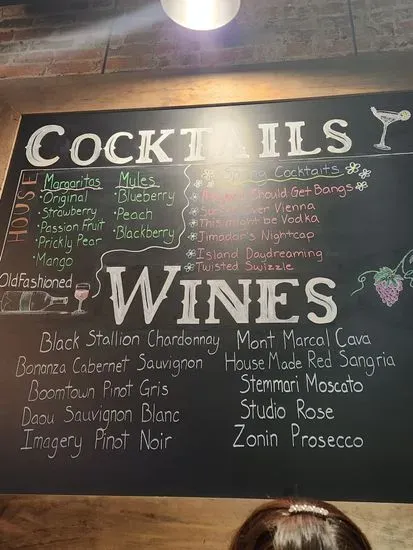 COCKTAILS
HOUSE
Margaritas
Original
Strawberry
Passion Fruit
Prickly Pear
Mango
Mules
Blueberry
Peach
Blackberry
Spring Cocktails
Should Get Bangs
Vienna
This might be Vodka
Jimador's Nightcap
Island Daydreaming
Twisted Swizzle
Old Fashioned
WINES
Black Stallion Chardonnay
Bonanza Cabernet Sauvignon
Boomtown Pinot Gris
Daou Sauvignon Blanc
Imagery Pinot Noir
Mont Marcal Cava
House Made Red Sangria
Stemmari Moscato
Studio Rose
Zonin Prosecco